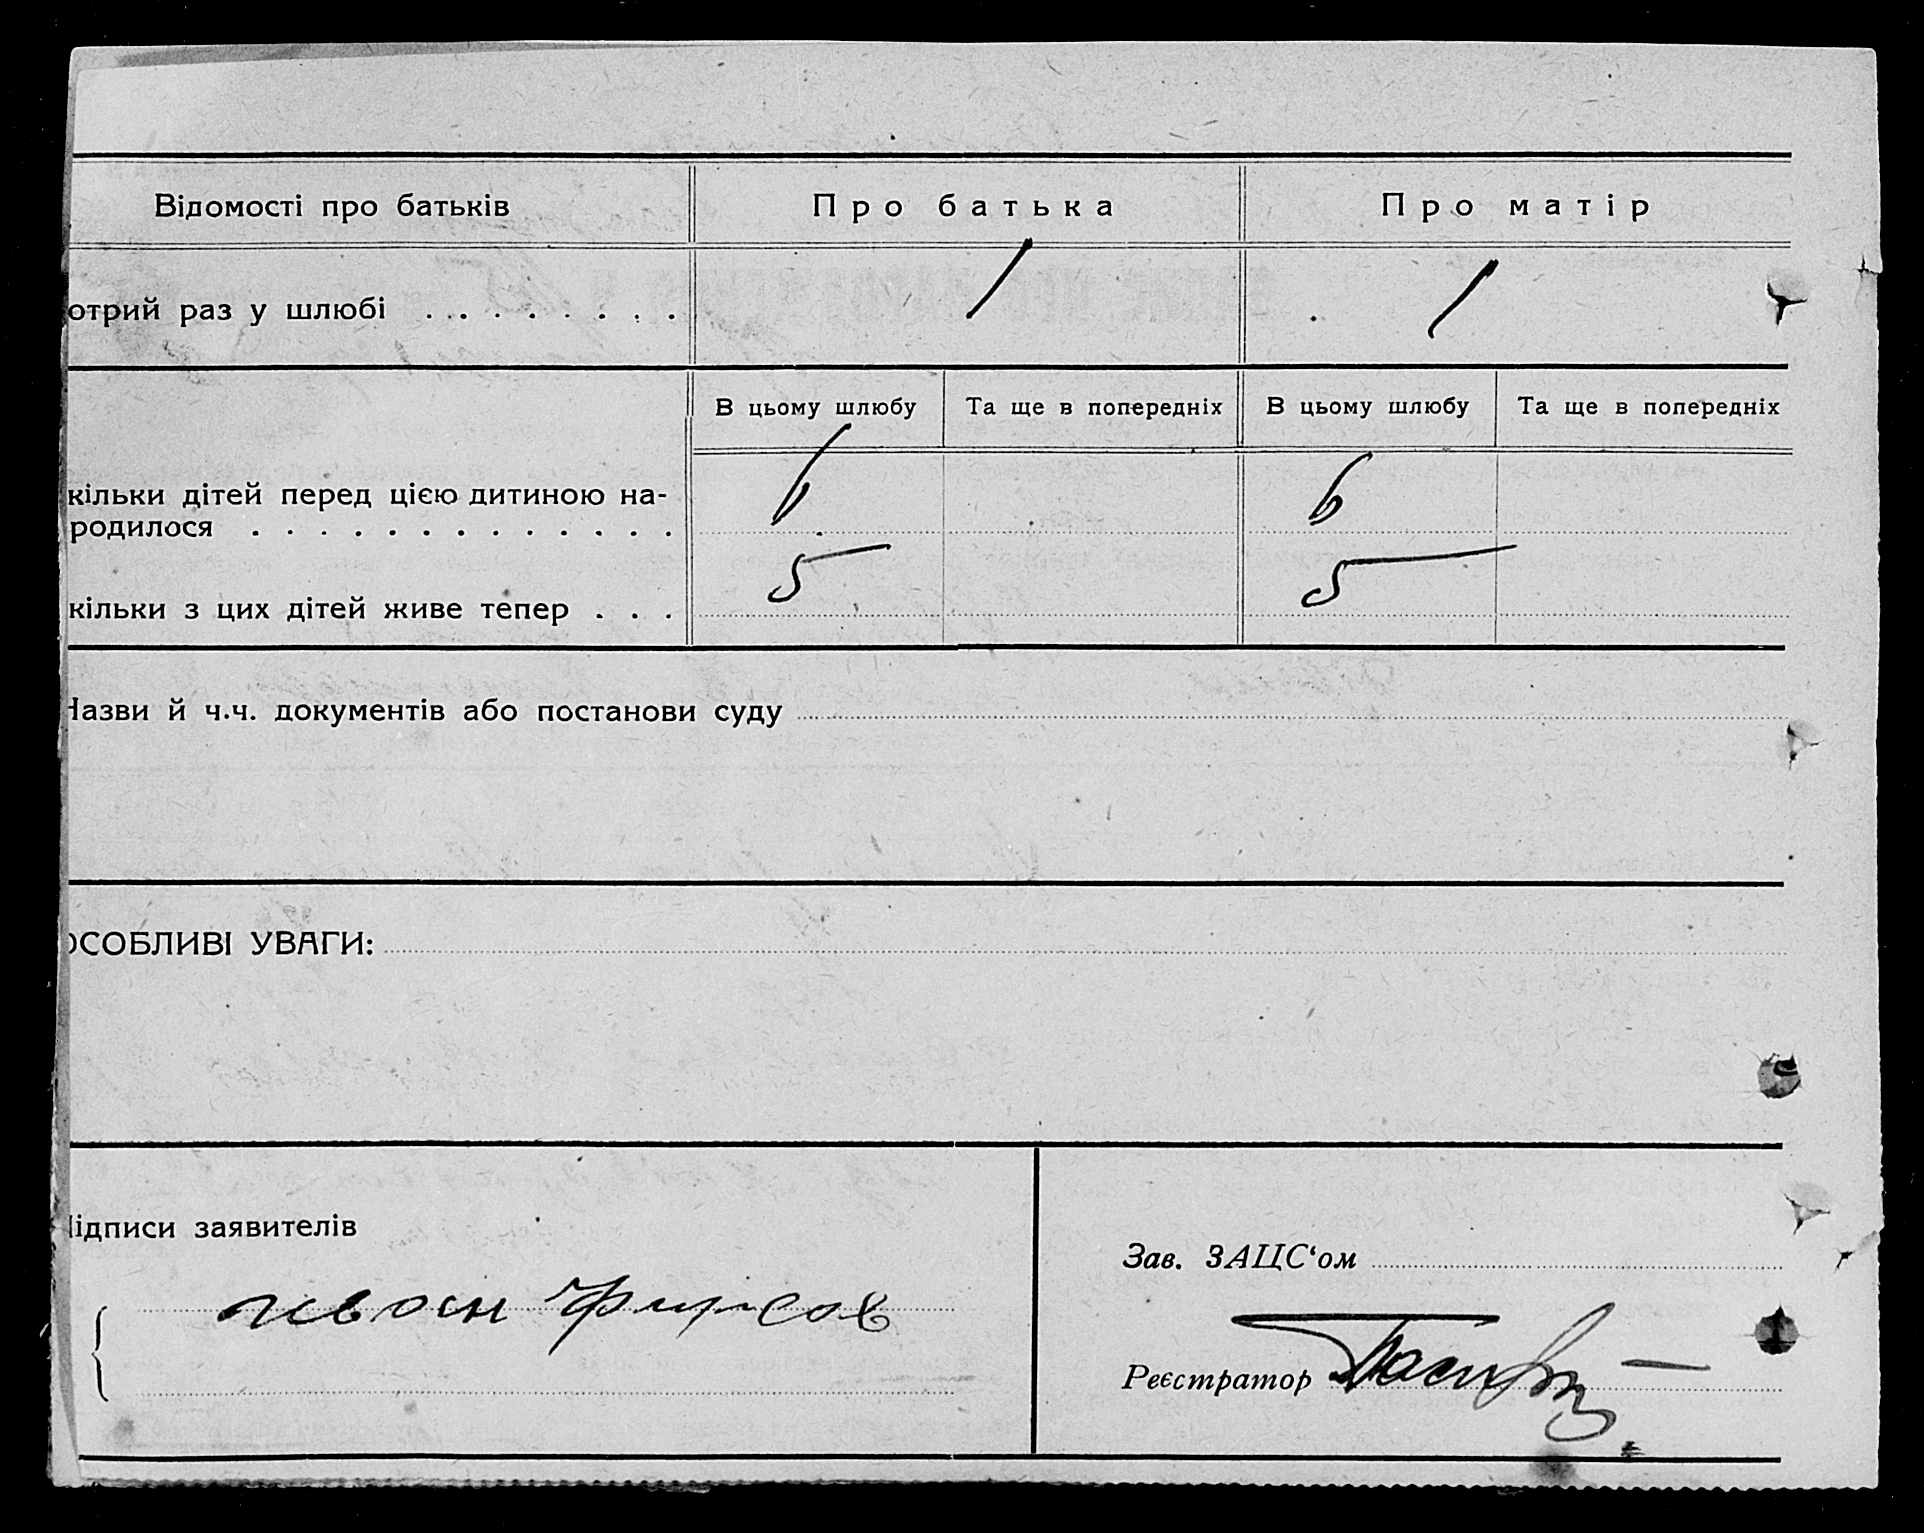 Відомості про батьків Про батька Про матір
отрий раз у шлюбі . . . . . . . . . 1 1
В цьому шлюбу Та ще в попередніх В цьому шлюбу Та ще в попередніх
кільки дітей перед цією дитиною на-
родилося . . . . . . . . . . . . . 6 6
кільки з цих дітей живе тепер . . . 5 5
Назви й ч.ч. документів або постанови суду
ОСОБЛИВІ УВАГИ:
Підписи заявителів
Зав. ЗАЦС‘ом
Фирсов
Реєстратор